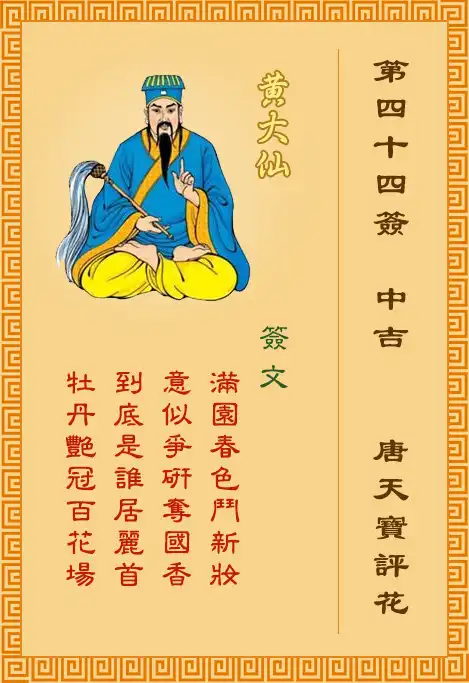 第四十四簽 中吉 唐天寶評花
黃大仙
簽文
滿園春色鬥新妝
意似爭妍奪國香
到底是誰居麗首
牡丹艷冠百花場